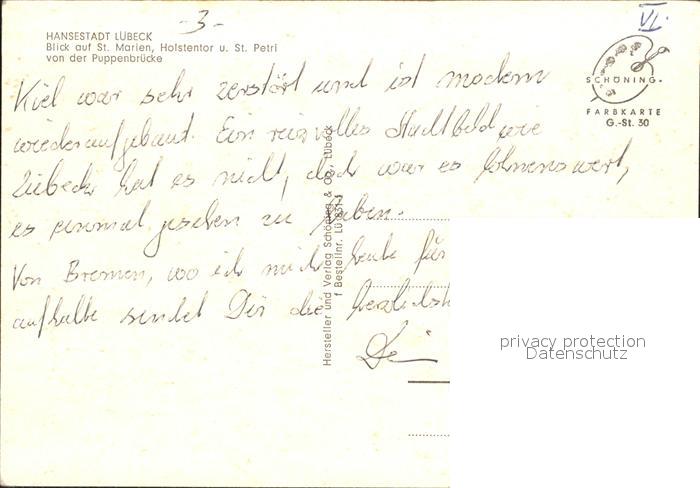 -3-
VI.
HANSESTADT LÜBECK
Blick auf St. Marien, Holstentor u. St. Petri
von der Puppenbrücke
SCHÖNING
FARBKARTE
G.-St. 30
Kiel war sehr zerstört und ist modern
wiederaufgebaut. Ein reizvolles Stadtbild wie
Lübeck hat es nicht, doch war es lohnenswert,
es einmal gesehen zu haben.
Von Bremen, wo ich mich heute für
aufhalte sendet Dir die
Dein
Hersteller und Verlag Schöning & Co., Lübeck
Bestellnr.
privacy protection
Datenschutz